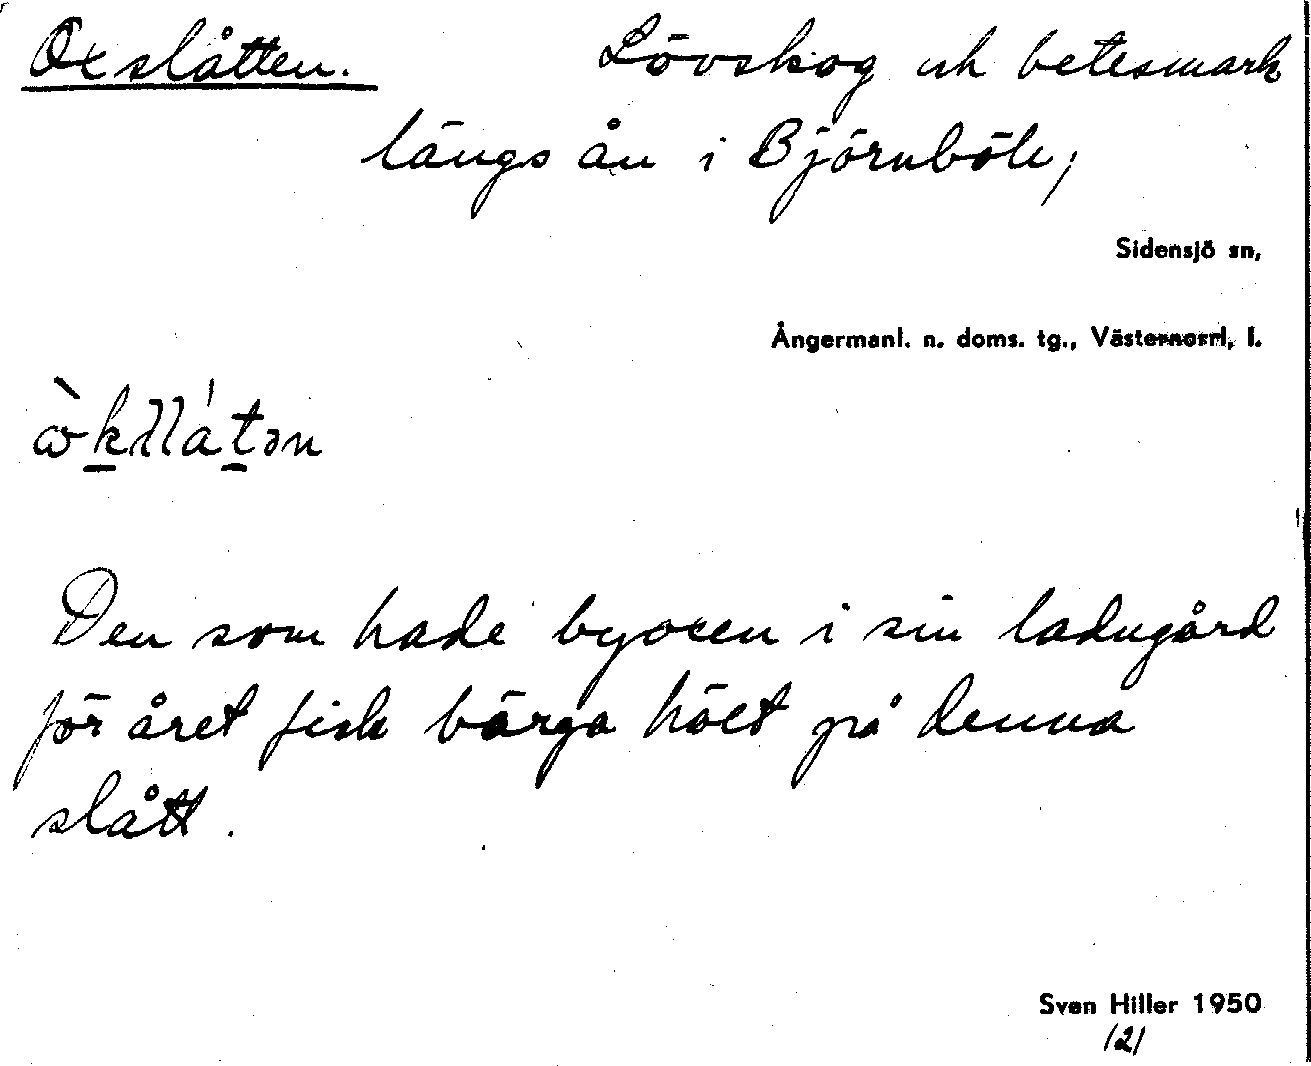 Oxslåtten. Lövskog och betesmark
längs ån i Björnböle,
Sidensjö sn,
Ångermanl. n. doms. tg., Västernorrl. l.
Den som hade byoxen i sin ladugård
för året fick bärga höet på denna
slått.
Sven Hiller 1950
/2/